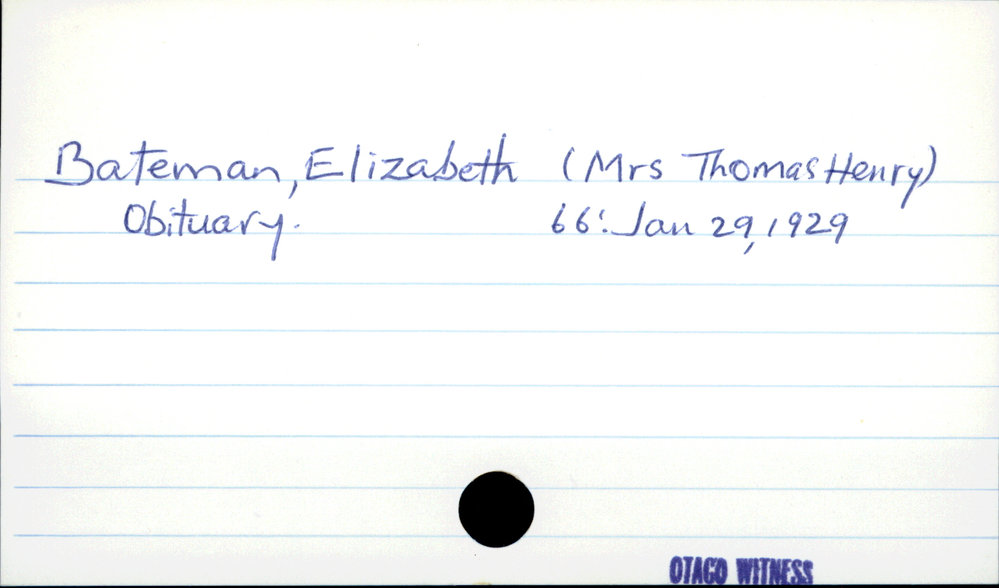 Bateman, Elizabeth (Mrs Thomas Henry)
Obituary. 66: Jan 29, 1929
OTAGO WITNESS